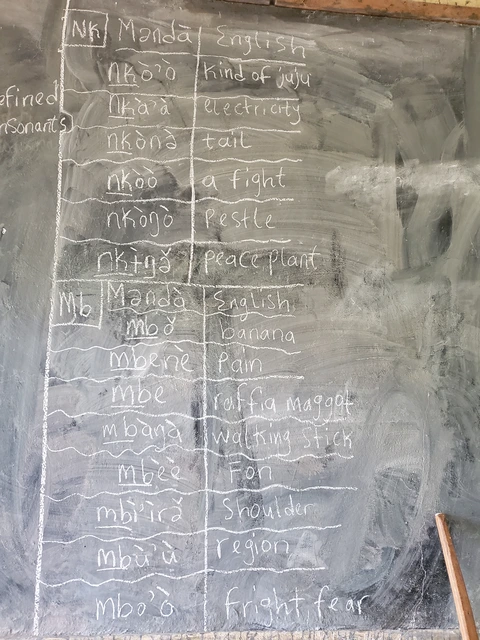 efined
nsonants
Nk Məndà English
nkò'ò kind of juju
nkà'à electricity
nkònə̀ tail
nkòò a fight
nkòŋò Pestle
nkɨ̀ŋə̌ peace plant
Mb Məndà English
mbǒ banana
mbeŋè Pain
mbe raffia maggot
mbaŋə̀ walking stick
mbeè Fon
mbì'ìrə̌ Shoulder
mbù'ù region
mbo'ò fright, fear